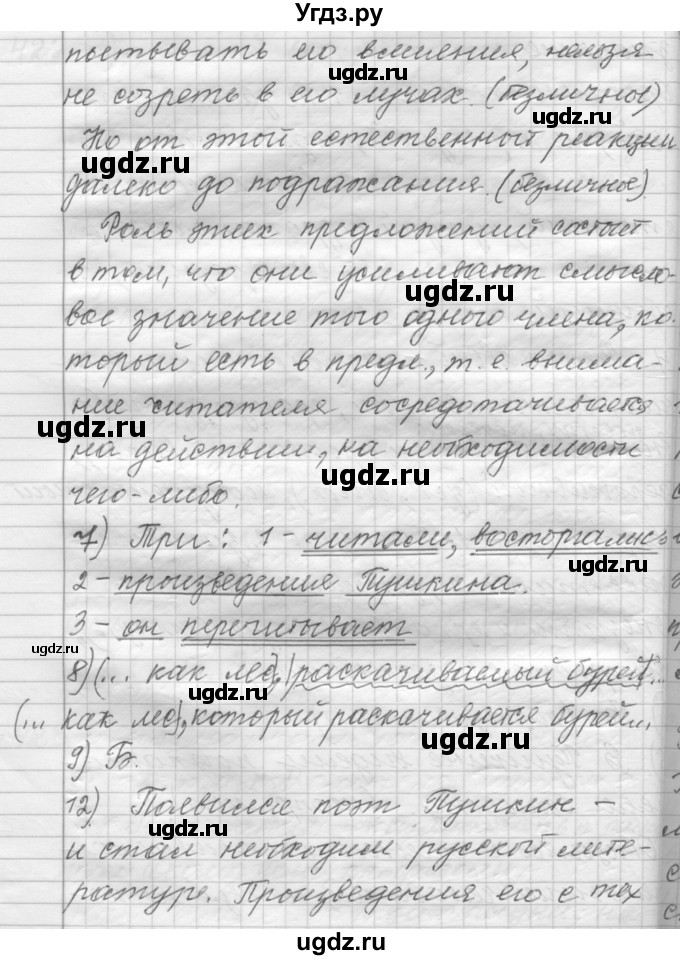 Угдз.ру
пытывать его влияния, нельзя
не созреть в его лучах. (безличное)
Но от этой естественной реакции
далеко до подражания. (безличное).
Роль этих предложений состоит
в том, что они усиливают смысло-
вое значение того одного члена, ко-
торый есть в предл., т.е. внима-
ние читателя сосредотачивается
на действии, на необходимости
чего-либо.
7) Три: 1 - читали, восторгались
2 - произведения Пушкина.
3 - он перечитывает
8) (... как лес), |раскачиваемый бурей|...
(... как лес), который раскачивается бурей...
9) Б.
12) Появился поэт Пушкин -
и стал необходим русской лите-
ратуре. Произведения его с тех
ugdz.ru
ugdz.ru
ugdz.ru
ugdz.ru
ugdz.ru
ugdz.ru
ugdz.ru
ugdz.ru
ugdz.ru
ugdz.ru
ugdz.ru
ugdz.ru
ugdz.ru